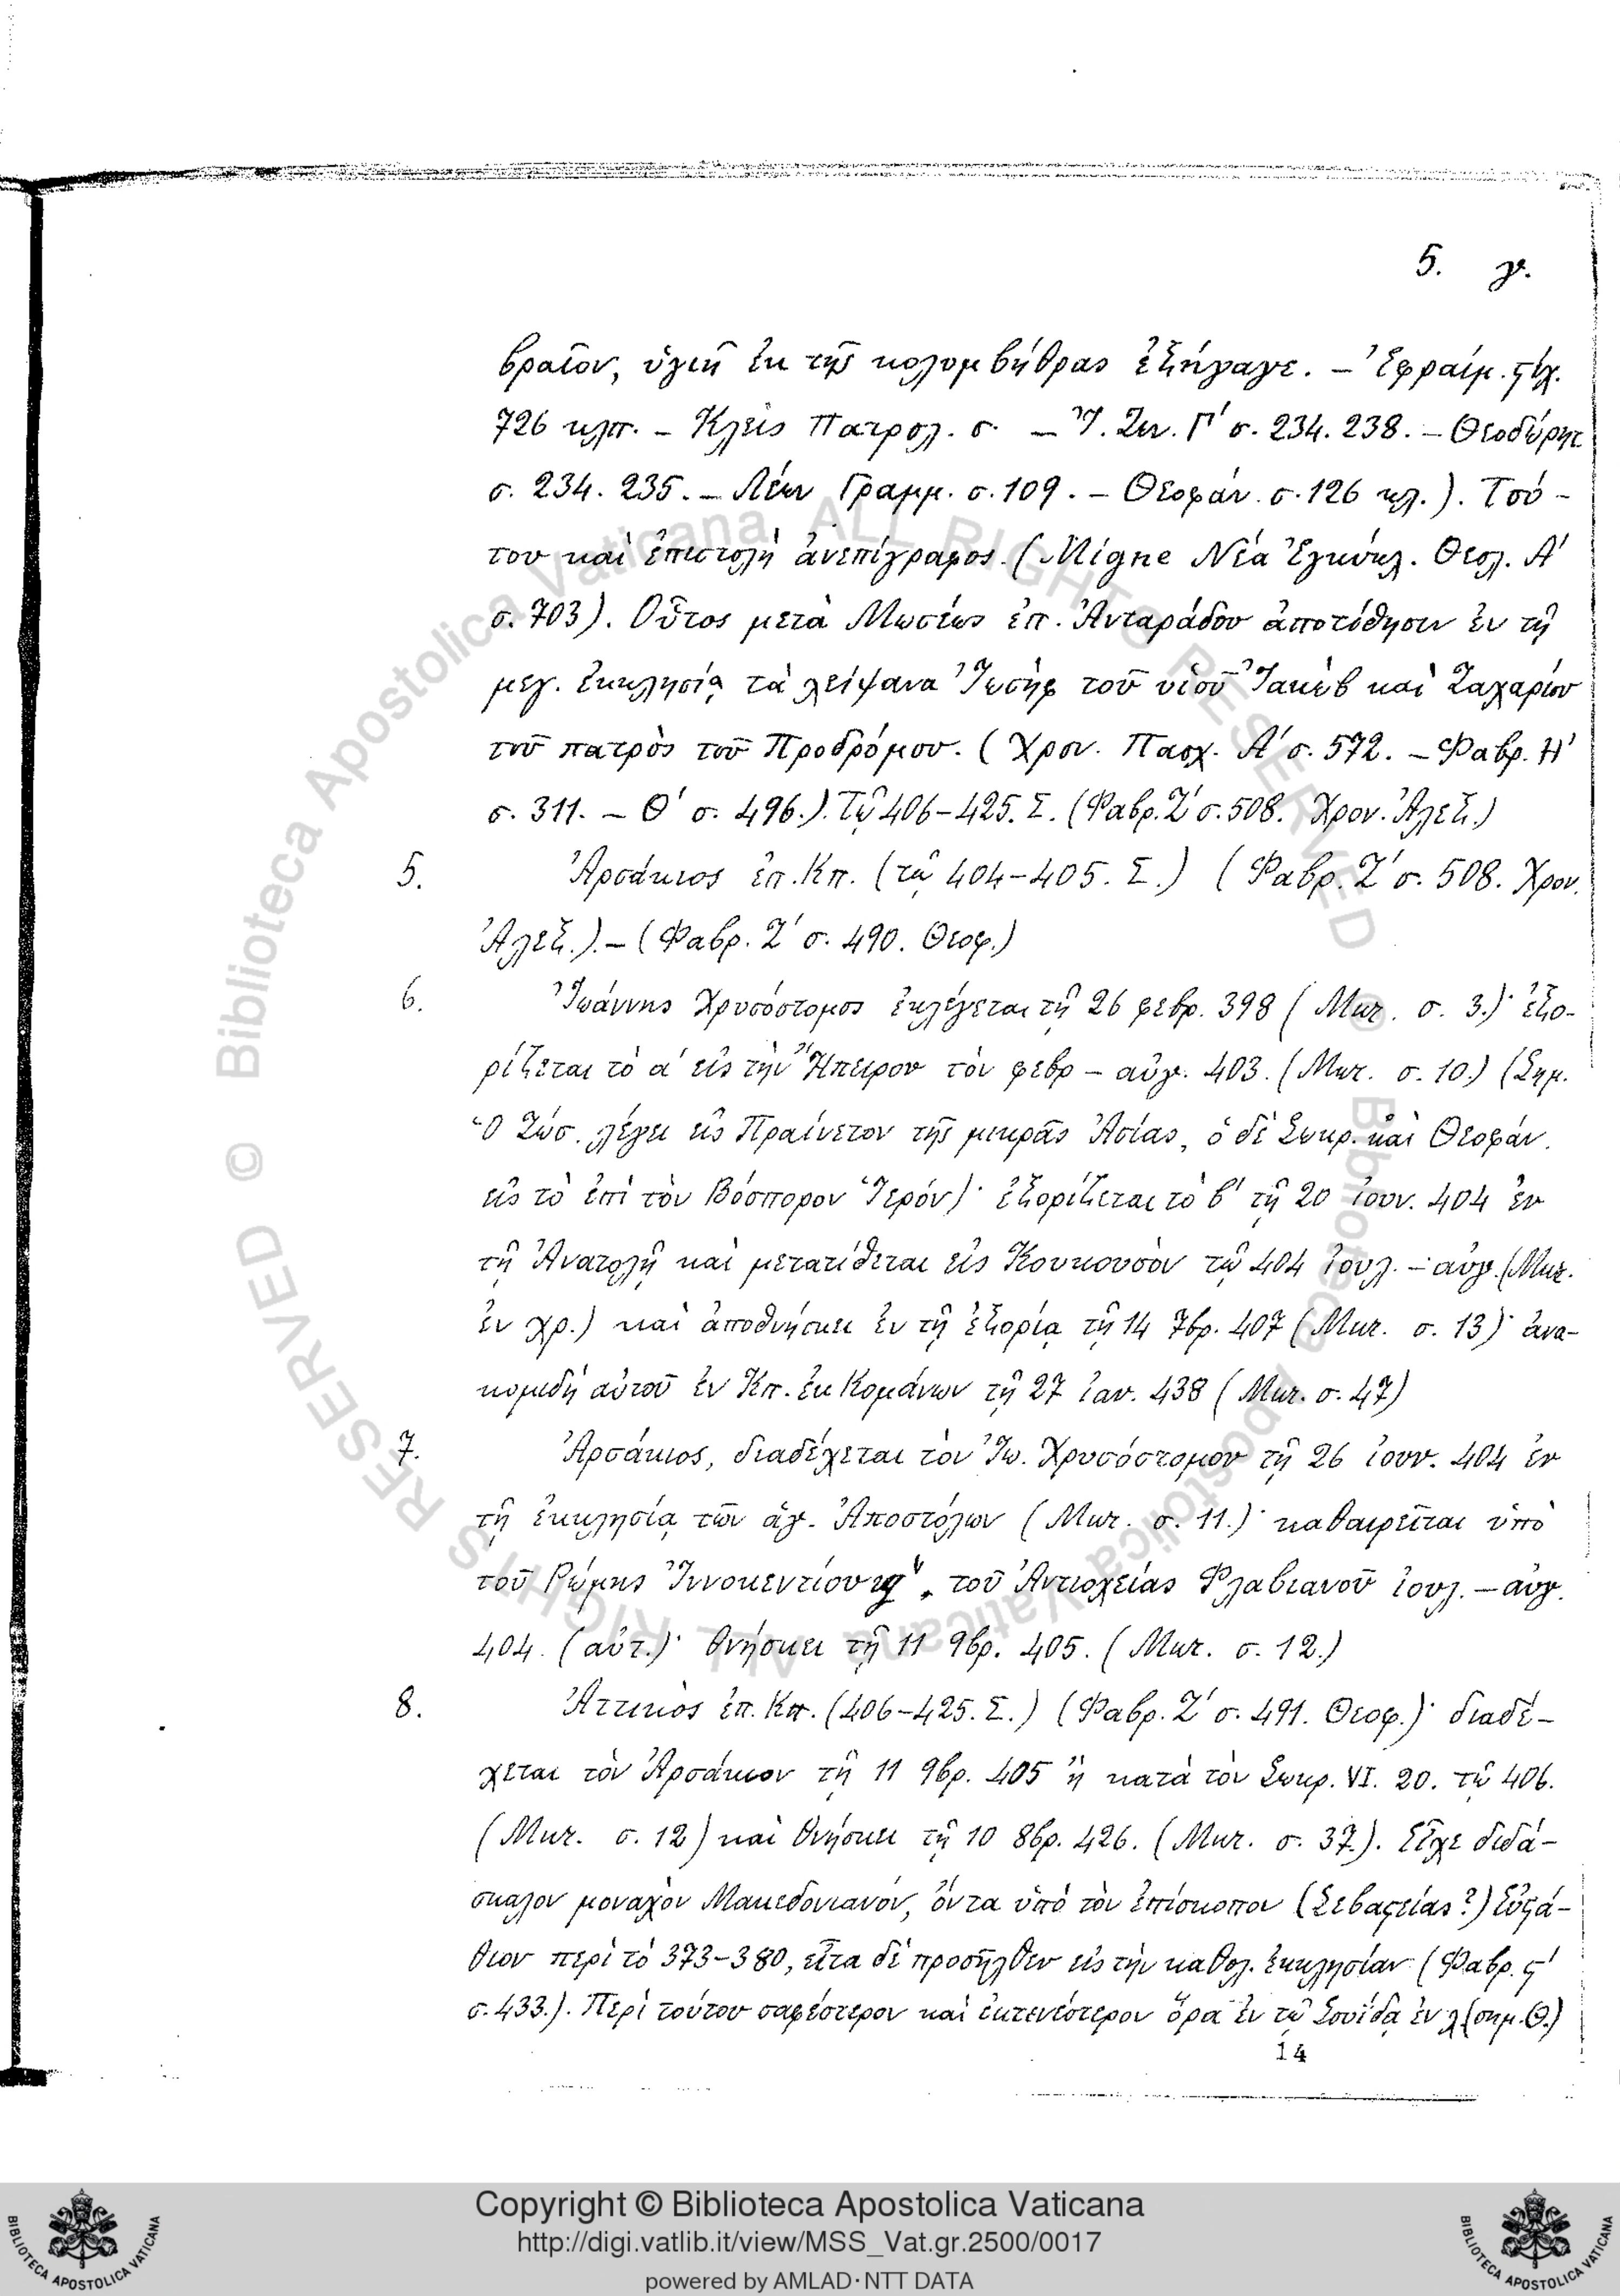 5. γ.
βραῖον, ὑγιῆ ἐκ τῆς κολυμβήθρας ἐξήγαγε. – Ἐφραίμ. στίχ.
726 κλπ. – Κλεὶς Πατρολ. σ. – Ἱ. Συν. Γ' σ. 234. 238. – Θεοδώρητ
σ. 234. 235. – Λέων Γραμμ. σ. 109. – Θεοφάν. σ. 126 κλ.). Τού-
του καὶ ἐπιστολὴ ἀνεπίγραφος. (Migne Νέα Ἐγκύκλ. Θεολ. Α'
σ. 703). Οὗτος μετὰ Μωσέως ἐπ. Ἀνταράδου ἀποτίθησιν ἐν τῇ
μεγ. ἐκκλησίᾳ τὰ λείψανα Ἰωσὴφ τοῦ υἱοῦ Ἰακὼβ καὶ Ζαχαρίου
τοῦ πατρὸς τοῦ Προδρόμου. (Χρον. Πασχ. Α' σ. 572. – Φαβρ. Η'
σ. 311. – Θ' σ. 496.). Τῷ 406–425. Σ. (Φαβρ. Ζ' σ. 508. Χρον. Ἀλεξ.)
5. Ἀρσάκιος ἐπ. Κπ. (τῷ 404–405. Σ.) (Φαβρ. Ζ' σ. 508. Χρον.
Ἀλεξ.). – (Φαβρ. Ζ' σ. 490. Θεοφ.)
6. Ἰωάννης Χρυσόστομος ἐκλέγεται τῇ 26 φεβρ. 398 (Μυρ. σ. 3.)· ἐξο-
ρίζεται τὸ α' εἰς τὴν Ἤπειρον τὸν φεβρ – αὔγ. 403. (Μυρ. σ. 10.) (Σημ.
Ὁ Ζώσ. λέγει εἰς Πραίνετον τῆς μικρᾶς Ἀσίας, ὁ δὲ Σωκρ. καὶ Θεοφάν.
εἰς τὸ ἐπὶ τὸν Βόσπορον Ἱερόν)· ἐξορίζεται τὸ β' τῇ 20 ἰουν. 404 ἐν
τῇ Ἀνατολῇ καὶ μετατίθεται εἰς Κουκουσὸν τῷ 404 ἰουλ. – αὐγ. (Μυρ.
ἐν χρ.) καὶ ἀποθνήσκει ἐν τῇ ἐξορίᾳ τῇ 14 7βρ. 407 (Μυρ. σ. 13)· ἀνα-
κομιδὴ αὐτοῦ ἐν Κπ. ἐκ Κομάνων τῇ 27 ἰαν. 438 (Μυρ. σ. 47)
7. Ἀρσάκιος, διαδέχεται τὸν Ἰω. Χρυσόστομον τῇ 26 ἰουν. 404 ἐν
τῇ ἐκκλησίᾳ τῶν ἁγ. Ἀποστόλων (Μυρ. σ. 11.)· καθαιρεῖται ὑπὸ
τοῦ Ῥώμης Ἰννοκεντίου τοῦ Ἀντιοχείας Φλαβιανοῦ ἰουλ. – αὐγ.
404. (αὐτ.)· θνήσκει τῇ 11 9βρ. 405. (Μυρ. σ. 12.)
8. Ἀττικὸς ἐπ. Κπ. (406–425. Σ.) (Φαβρ. Ζ' σ. 491. Θεοφ.)· διαδέ-
χεται τὸν Ἀρσάκιον τῇ 11 9βρ. 405 ἢ κατὰ τὸν Σωκρ. VI. 20. τῷ 406.
(Μυρ. σ. 12) καὶ θνήσκει τῇ 10 8βρ. 426. (Μυρ. σ. 37.). Εἶχε διδά-
σκαλον μοναχὸν Μακεδονιανόν, ὄντα ὑπὸ τὸν ἐπίσκοπον (Σεβαστείας?) Εὐστά-
θιον περὶ τὸ 373–380, εἶτα δὲ προσῆλθεν εἰς τὴν καθολ. ἐκκλησίαν (Φαβρ. ϛ'
σ. 433.). Περὶ τούτου σαφέστερον καὶ ἐκτενέστερον ὅρα ἐν τῷ Σουΐδᾳ ἐν λ (σημ. Θ.)
14
© Biblioteca Apostolica Vaticana ALL RIGHTS RESERVED © Biblioteca Apostolica Vaticana ALL RIGHTS RESERVED
Copyright © Biblioteca Apostolica Vaticana
http://digi.vatlib.it/view/MSS_Vat.gr.2500/0017
powered by AMLAD·NTT DATA
BIBLIOTECA APOSTOLICA VATICANA
BIBLIOTECA APOSTOLICA VATICANA